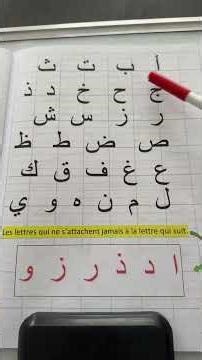 أ ب ت ث
ج ح خ د ذ
ر ز س ش
ص ض ط ظ
ع غ ف ق ك
ل م ن ه و ي
Les lettres qui ne s'attachent jamais à la lettre qui suit.
ا د ذ ر ز و